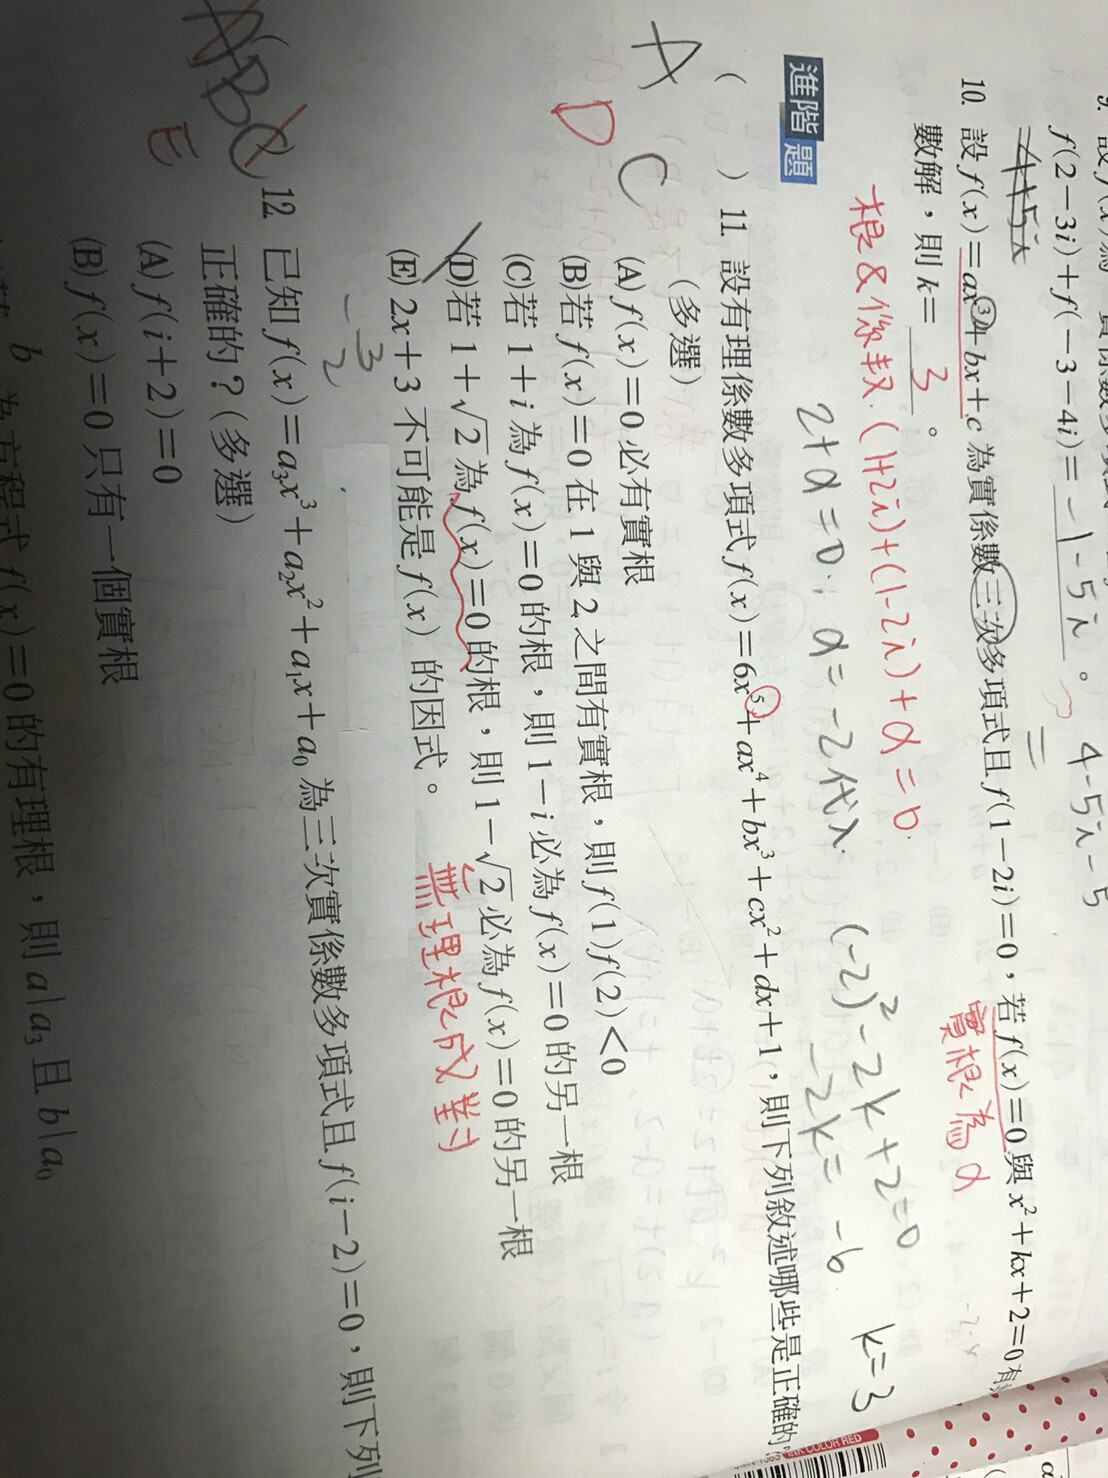 9.
f(2-3i)+f(-3-4i)= -1-5i 。
4-5i-5
-4+5i
10. 設 f(x)=ax³+bx+c 為實係數三次多項式且 f(1-2i)=0,若 f(x)=0 與 x²+kx+2=0 有
數解,則 k= 3 。
實根為α
根&係數. (1+2i)+(1-2i)+α=0.
2+α=0. α=-2代入.
(-2)²-2k+2=0
-2k=-6
k=3
進階題
A C
D
( ) 11. 設有理係數多項式 f(x)=6x⁵+ax⁴+bx³+cx²+dx+1,則下列敘述哪些是正確的
(多選)
(A) f(x)=0 必有實根
(B)若 f(x)=0 在 1 與 2 之間有實根,則 f(1)f(2)<0
(C)若 1+i 為 f(x)=0 的根,則 1-i 必為 f(x)=0 的另一根
(D)若 1+√2 為 f(x)=0 的根,則 1-√2 必為 f(x)=0 的另一根
無理根成對
(E) 2x+3 不可能是 f(x) 的因式。
-3
2
ABC
E
12. 已知 f(x)=a₃x³+a₂x²+a₁x+a₀ 為三次實係數多項式且 f(i-2)=0,則下列
正確的?(多選)
(A) f(i+2)=0
(B) f(x)=0 只有一個實根
b 為方程式 f(x)=0 的有理根,則 a|a₃ 且 b|a₀
INK COLOR RED